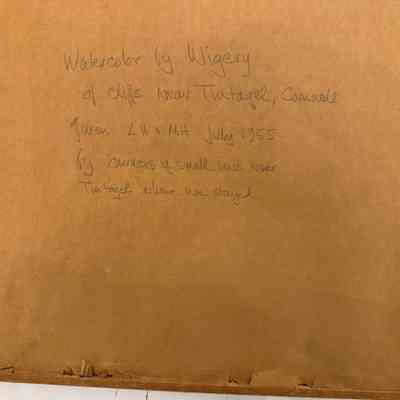 Watercolor by Wigery
of cliffs near Tintagel, Cornwall
given LW & MH July 1955
by owners of small inn near
Tintagel where we stayed